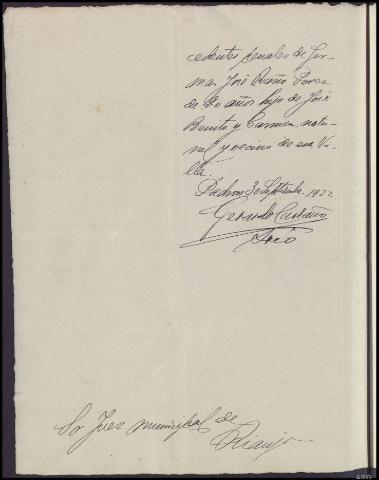 cedentes penales de Ger-
man José Baño Perez
de 20 años hijo de José
Benito y Carmen natu-
ral y vecino de esa Vi-
lla.
Padron 30 Septiembre 1922
Gerardo Castaño
Sr Juez municipal de
ARG